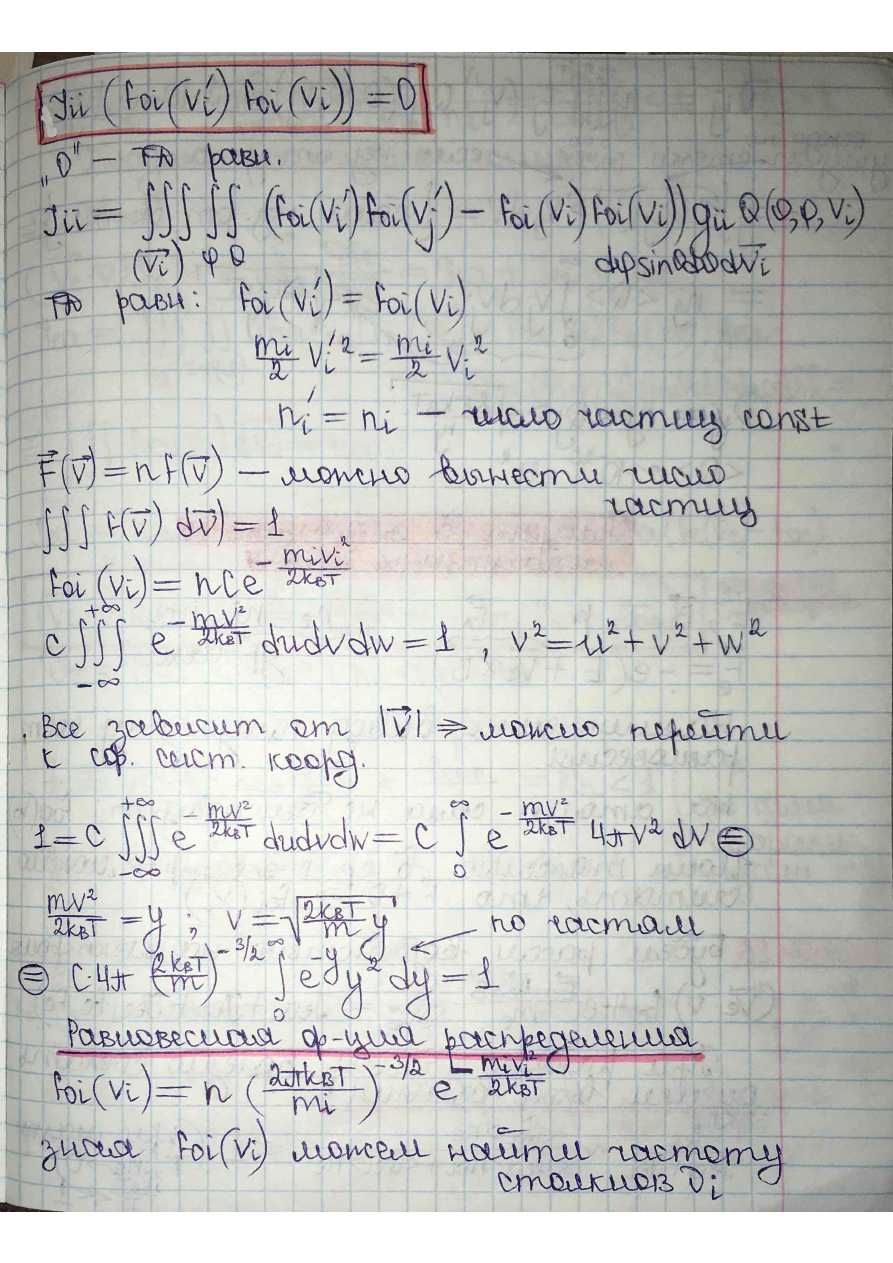 Jii (foi(vi') foi(vi)) = 0
„0" — ТД равн.
Jii = ∫∫∫ ∫∫ (foi(vi') foi(vj') – foi(vi) foi(vi)) gii Q(θ,φ,vi)
(v⃗i) φ θ dφ sinθ dθ dv⃗i
ТД равн: foi(vi') = foi(vi)
mi/2 vi'² = mi/2 vi²
ni' = ni — число частиц const
F⃗(v⃗) = n f(v⃗) — можно вынести число
частиц
∫∫∫ f(v⃗) dv⃗) = 1
foi (vi) = nCe^(– mivi²/2kвT)
C ∫∫∫_{-∞}^{+∞} e^(– mv²/2kвT) dudvdw = 1 , v² = u² + v² + w²
Все зависит от |v⃗| ⇒ можно перейти
к сф. сист. коорд.
1 = C ∫∫∫_{-∞}^{+∞} e^(– mv²/2kвT) dudvdw = C ∫_0^∞ e^(– mv²/2kвT) 4πv² dv ⊜
mv²/2kвT = y ; v = √(2kвT/m y) по частям
⊜ C·4π (2kвT/m)^(–3/2) ∫_0^∞ e^(–y) y² dy = 1
Равновесная ф-ция распределения
foi(vi) = n (2πkвT/mi)^(–3/2) e^(– mivi²/2kвT)
зная foi(vi) можем найти частоту
столкнов νi